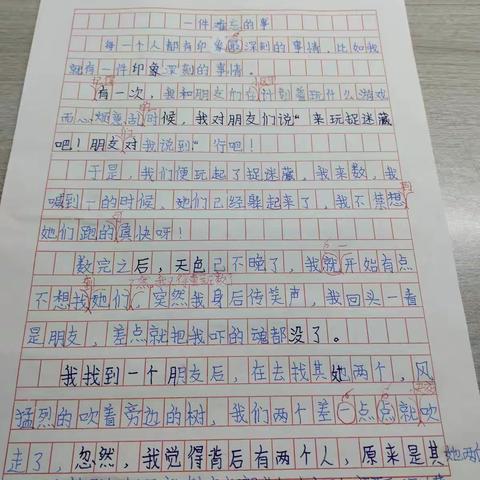 一件难忘的事
每一个人都有印象最深刻的事情，比如我
就有一件印象深刻的事情。
有一次，我和朋友们在计划着玩什么游戏
而心烦意乱时候，我对朋友们说“来玩捉迷藏
吧！朋友对我说到：“行吧！
于是，我们便玩起了捉迷藏，我来数，我
喊到一的时候，她们已经躲起来了，我不禁想
她们跑的真快呀！
数完之后，天色已不晚了，我就开始有点
不想找她们，突然我身后传笑声，我回头一看
是朋友，差点就把我吓的魂都没了。
我找到一个朋友后，在去找其她两个，风
猛烈的吹着旁边的树，我们两个差一点点就吹
走了，忽然，我觉得背后有两个人，原来是其她两